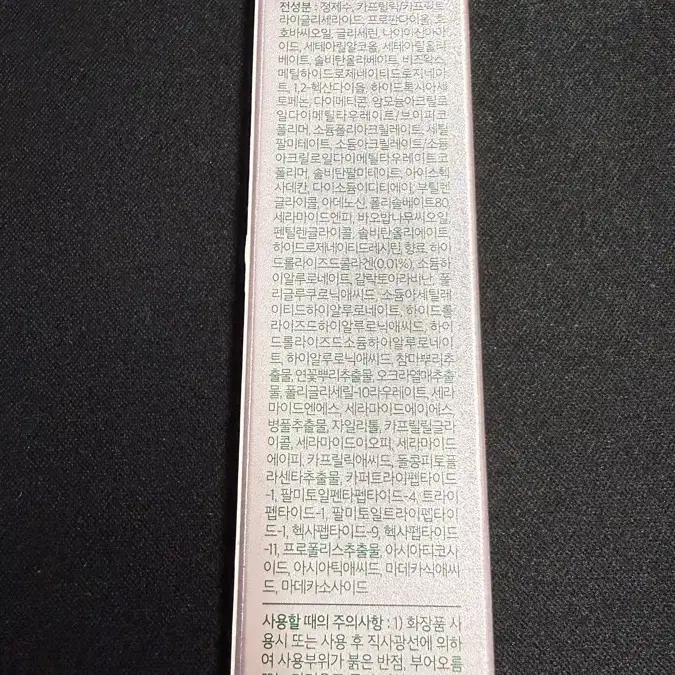 전성분 : 정제수, 카프릴릭/카프릭트
라이글리세라이드, 프로판다이올, 호
호바씨오일, 글리세린, 나이아신아마
이드, 세테아릴알코올, 세테아릴올리
베이트, 솔비탄올리베이트, 비즈왁스,
메틸하이드로제네이티드로지네이
트, 1,2-헥산다이올, 하이드록시아세
토페논, 다이메티콘, 암모늄아크릴로
일다이메틸타우레이트/브이피코
폴리머, 소듐폴리아크릴레이트, 세틸
팔미테이트, 소듐아크릴레이트/소듐
아크릴로일다이메틸타우레이트코
폴리머, 솔비탄팔미테이트, 아이소헥
사데칸, 다이소듐이디티에이, 부틸렌
글라이콜, 아데노신, 폴리솔베이트80,
세라마이드엔피, 바오밥나무씨오일,
펜틸렌글라이콜, 솔비탄올리에이트,
하이드로제네이티드레시틴, 향료, 하이
드롤라이즈드콜라겐(0.01%), 소듐하
이알루로네이트, 갈락토아라비난, 폴
리글루쿠로닉애씨드, 소듐아세틸레
이티드하이알루로네이트, 하이드롤
라이즈드하이알루로닉애씨드, 하이
드롤라이즈드소듐하이알루로네이
트, 하이알루로닉애씨드, 참마뿌리추
출물, 연꽃뿌리추출물, 오크라열매추출
물, 폴리글리세릴-10라우레이트, 세라
마이드엔에스, 세라마이드에이에스,
병풀추출물, 자일리톨, 카프릴릴글라
이콜, 세라마이드이오피, 세라마이드
에이피, 카프릴릭애씨드, 돌콩피토플
라센타추출물, 카퍼트라이펩타이드
-1, 팔미토일펜타펩타이드-4, 트라이
펩타이드-1, 팔미토일트라이펩타이
드-1, 헥사펩타이드-9, 헥사펩타이드
-11, 프로폴리스추출물, 아시아티코사
이드, 아시아틱애씨드, 마데카식애씨
드, 마데카소사이드
사용할 때의 주의사항 : 1) 화장품 사
용시 또는 사용 후 직사광선에 의하
여 사용부위가 붉은 반점, 부어오름